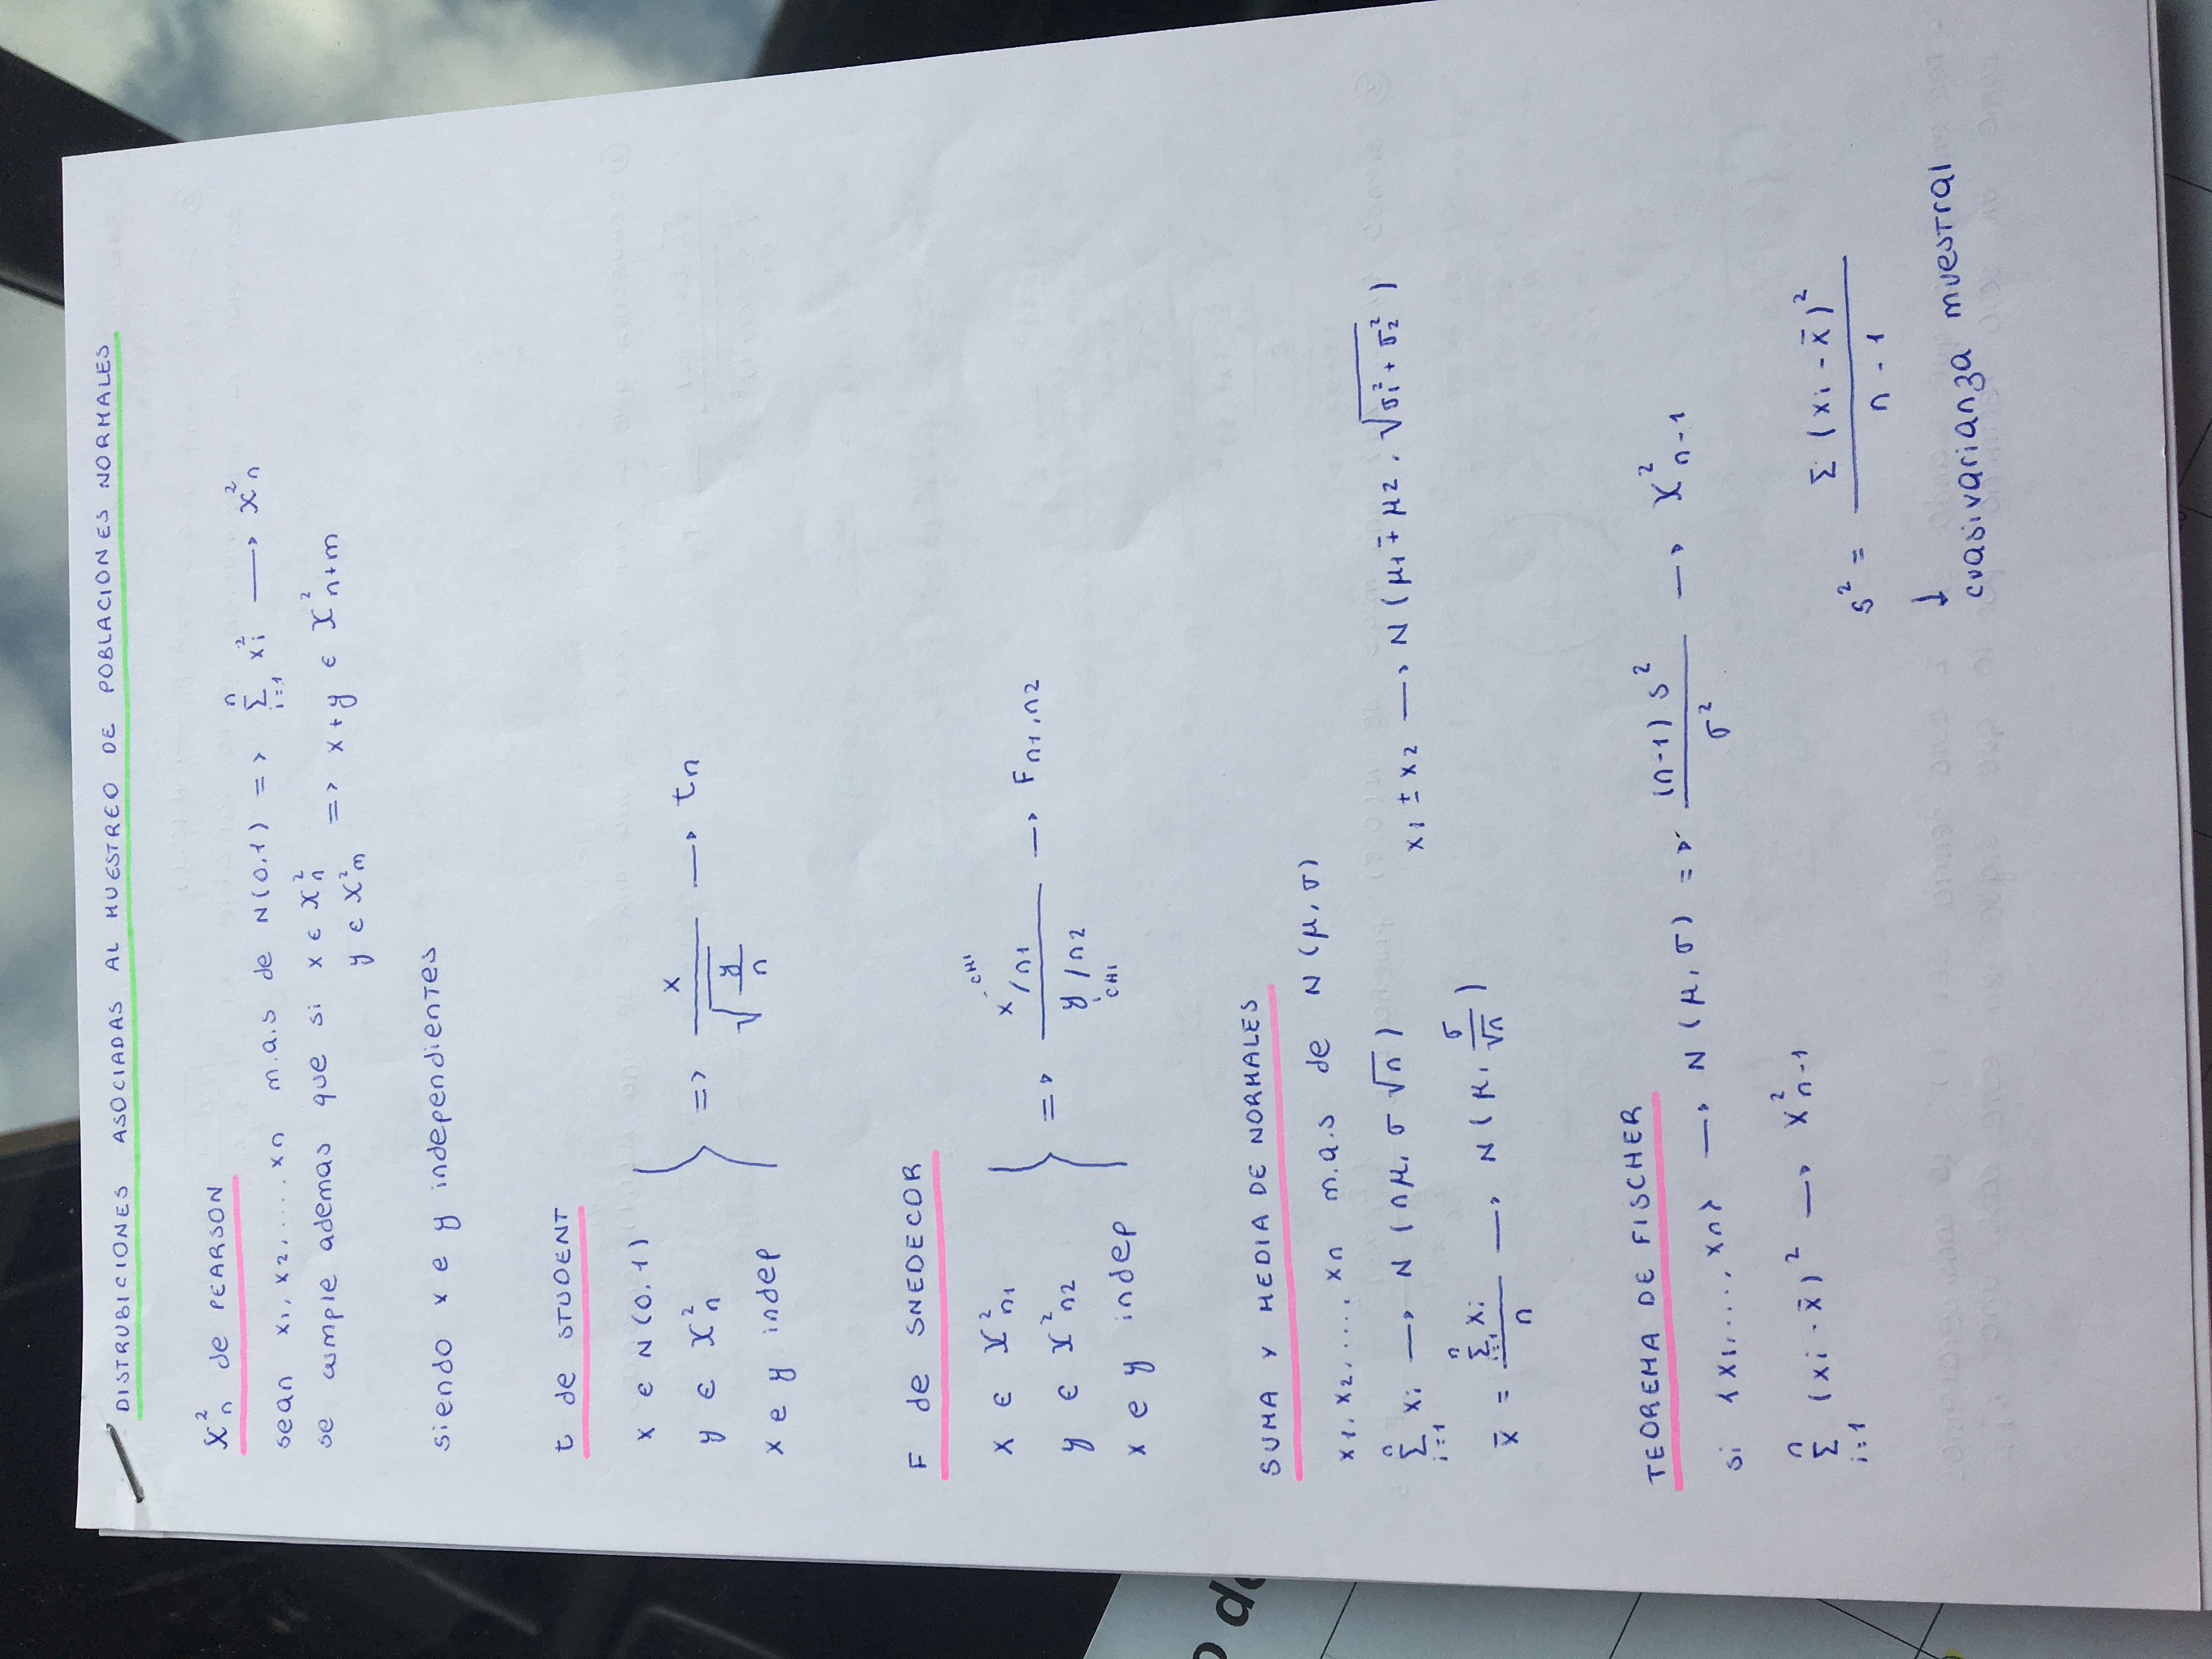 DISTRUBICIONES ASOCIADAS AL MUESTREO DE POBLACIONES NORMALES
χ²n de PEARSON
sean x1, x2, ...., xn m.a.s de N(0,1) => Σ_{i=1}^{n} xi² → χ²n
se cumple ademas que si x ∈ χ²n
y ∈ χ²m => x + y ∈ χ²n+m
siendo x e y independientes
t de STUDENT
x ∈ N(0,1)
y ∈ χ²n => x / √(y/n) → tn
x e y indep
F de SNEDECOR
x ∈ χ²n1
y ∈ χ²n2 => (x/n1) / (y/n2) → Fn1,n2
CHI
CHI
x e y indep
SUMA Y MEDIA DE NORMALES
x1, x2, ...., xn m.a.s de N(μ, σ)
Σ_{i=1}^{n} xi → N(nμ, σ√n) x1 ± x2 → N(μ1 ∓ μ2, √(σ1² + σ2²))
x̄ = Σ_{i=1}^{n} xi / n → N(μ, σ/√n)
TEOREMA DE FISCHER
si {x1, ...., xn} → N(μ, σ) => (n-1) s² / σ² → χ²n-1
Σ_{i=1}^{n} (xi - x̄)² → χ²n-1
s² = Σ (xi - x̄)² / n - 1
↓
cuasivarianza muestral
o de